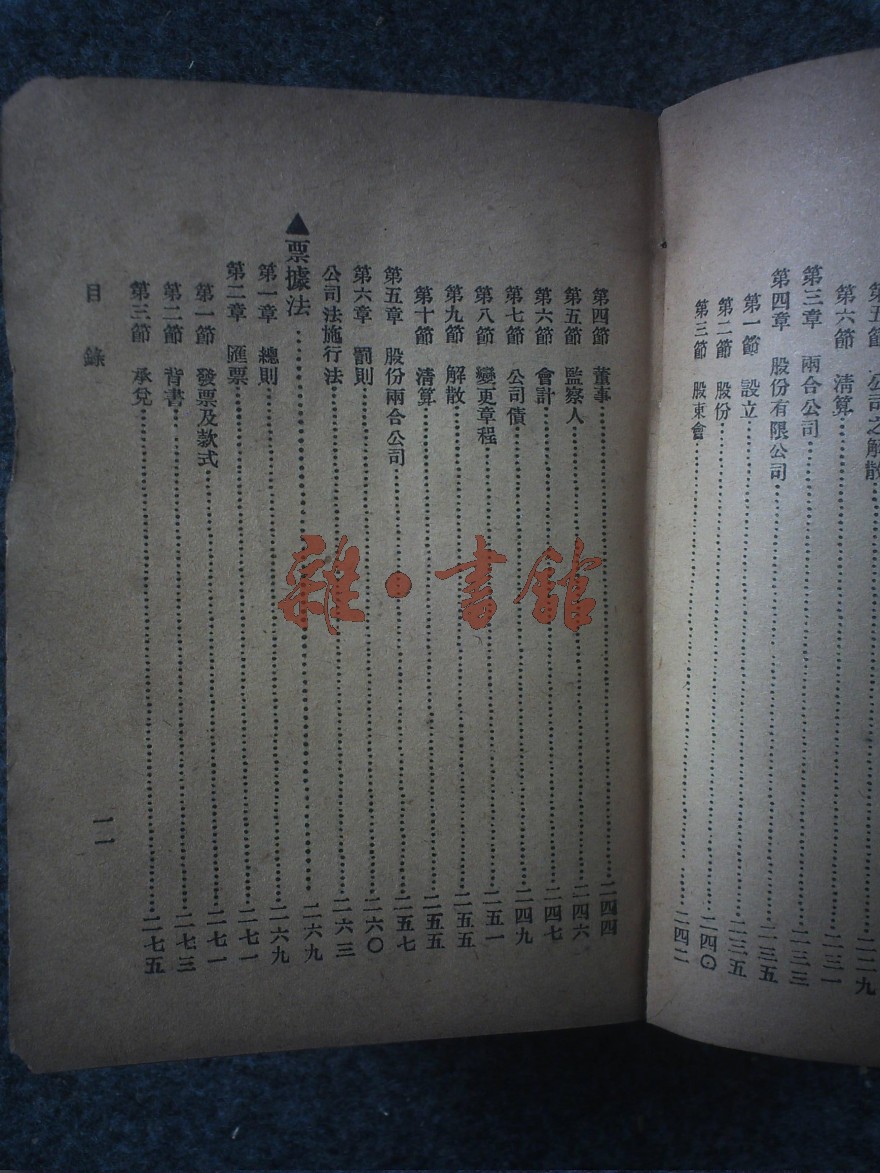 第五節　公司之解散……二二九
第六節　清算……二三一
第三章　兩合公司……二三三
第四章　股份有限公司……二三五
第一節　設立……二三五
第二節　股份……二四〇
第三節　股東會……二四二
第四節　董事……二四四
第五節　監察人……二四六
第六節　會計……二四七
第七節　公司債……二四九
第八節　變更章程……二五一
第九節　解散……二五五
第十節　清算……二五五
第五章　股份兩合公司……二五七
第六章　罰則……二六〇
公司法施行法……二六三
▲票據法……二六九
第一章　總則……二六九
第二章　匯票……二七一
第一節　發票及款式……二七一
第二節　背書……二七三
第三節　承兌……二七五
目錄
一一
雜·書館